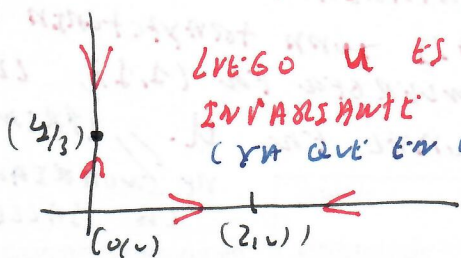 LUEGO U ES
INVARIANTE
(YA QUE EN
(4/3)
(0,0)
(2,0)